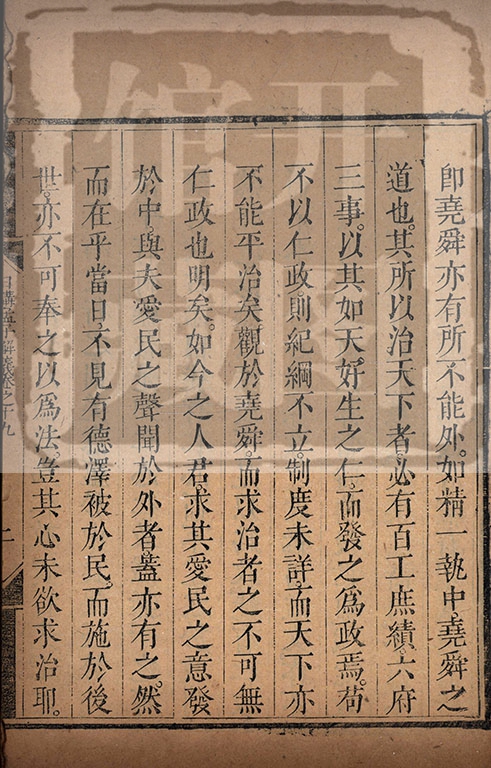 卽堯舜亦有所不能外。如精一執中堯舜之
道也。其所以治天下者。必有百工庶績。六府
三事。以其如天好生之仁。而發之爲政焉。苟
不以仁政則紀綱不立。制度未詳。而天下亦
不能平治矣觀於堯舜。而求治者之不可無
仁政也明矣。如今之人君。求其愛民之意發
於中。與夫愛民之聲聞於外者。蓋亦有之。然
而在乎當日不見有德澤被於民。而施於後
世。亦不可奉之以爲法。豈其心未欲求治耶。
日講孟子解義卷之十九
二